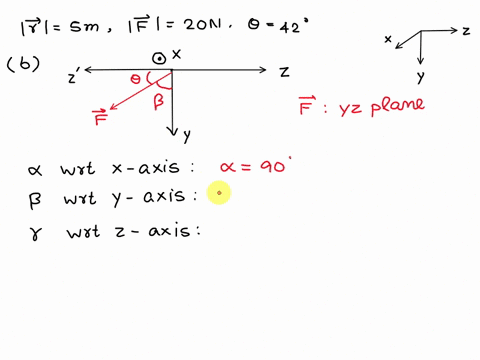 |r⃗| = 5m , |F⃗| = 20N . θ = 42°
(b)
x
z' θ z
β
F⃗
y
x z
y
F⃗ : yz plane
α wrt x-axis : α = 90°
β wrt y-axis :
γ wrt z-axis :